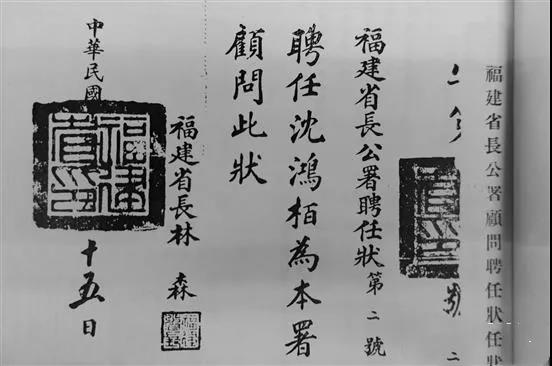 福建省長公署顧問聘任狀任狀
福建省長公署聘任狀第二號
聘任沈鴻栢為本署
顧問此狀
福建省長林森
中華民國
十五日